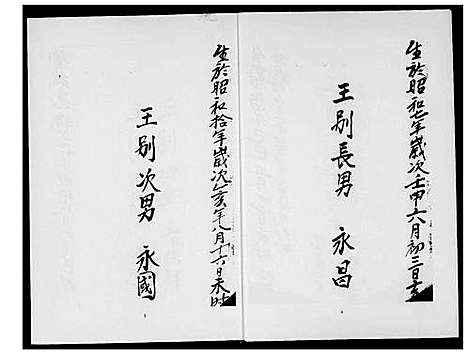 生於昭和七年歲次壬申六月初三日亥
王别長男 永昌
生於昭和拾年歲次乙亥年八月十六日未時
王别次男 永國